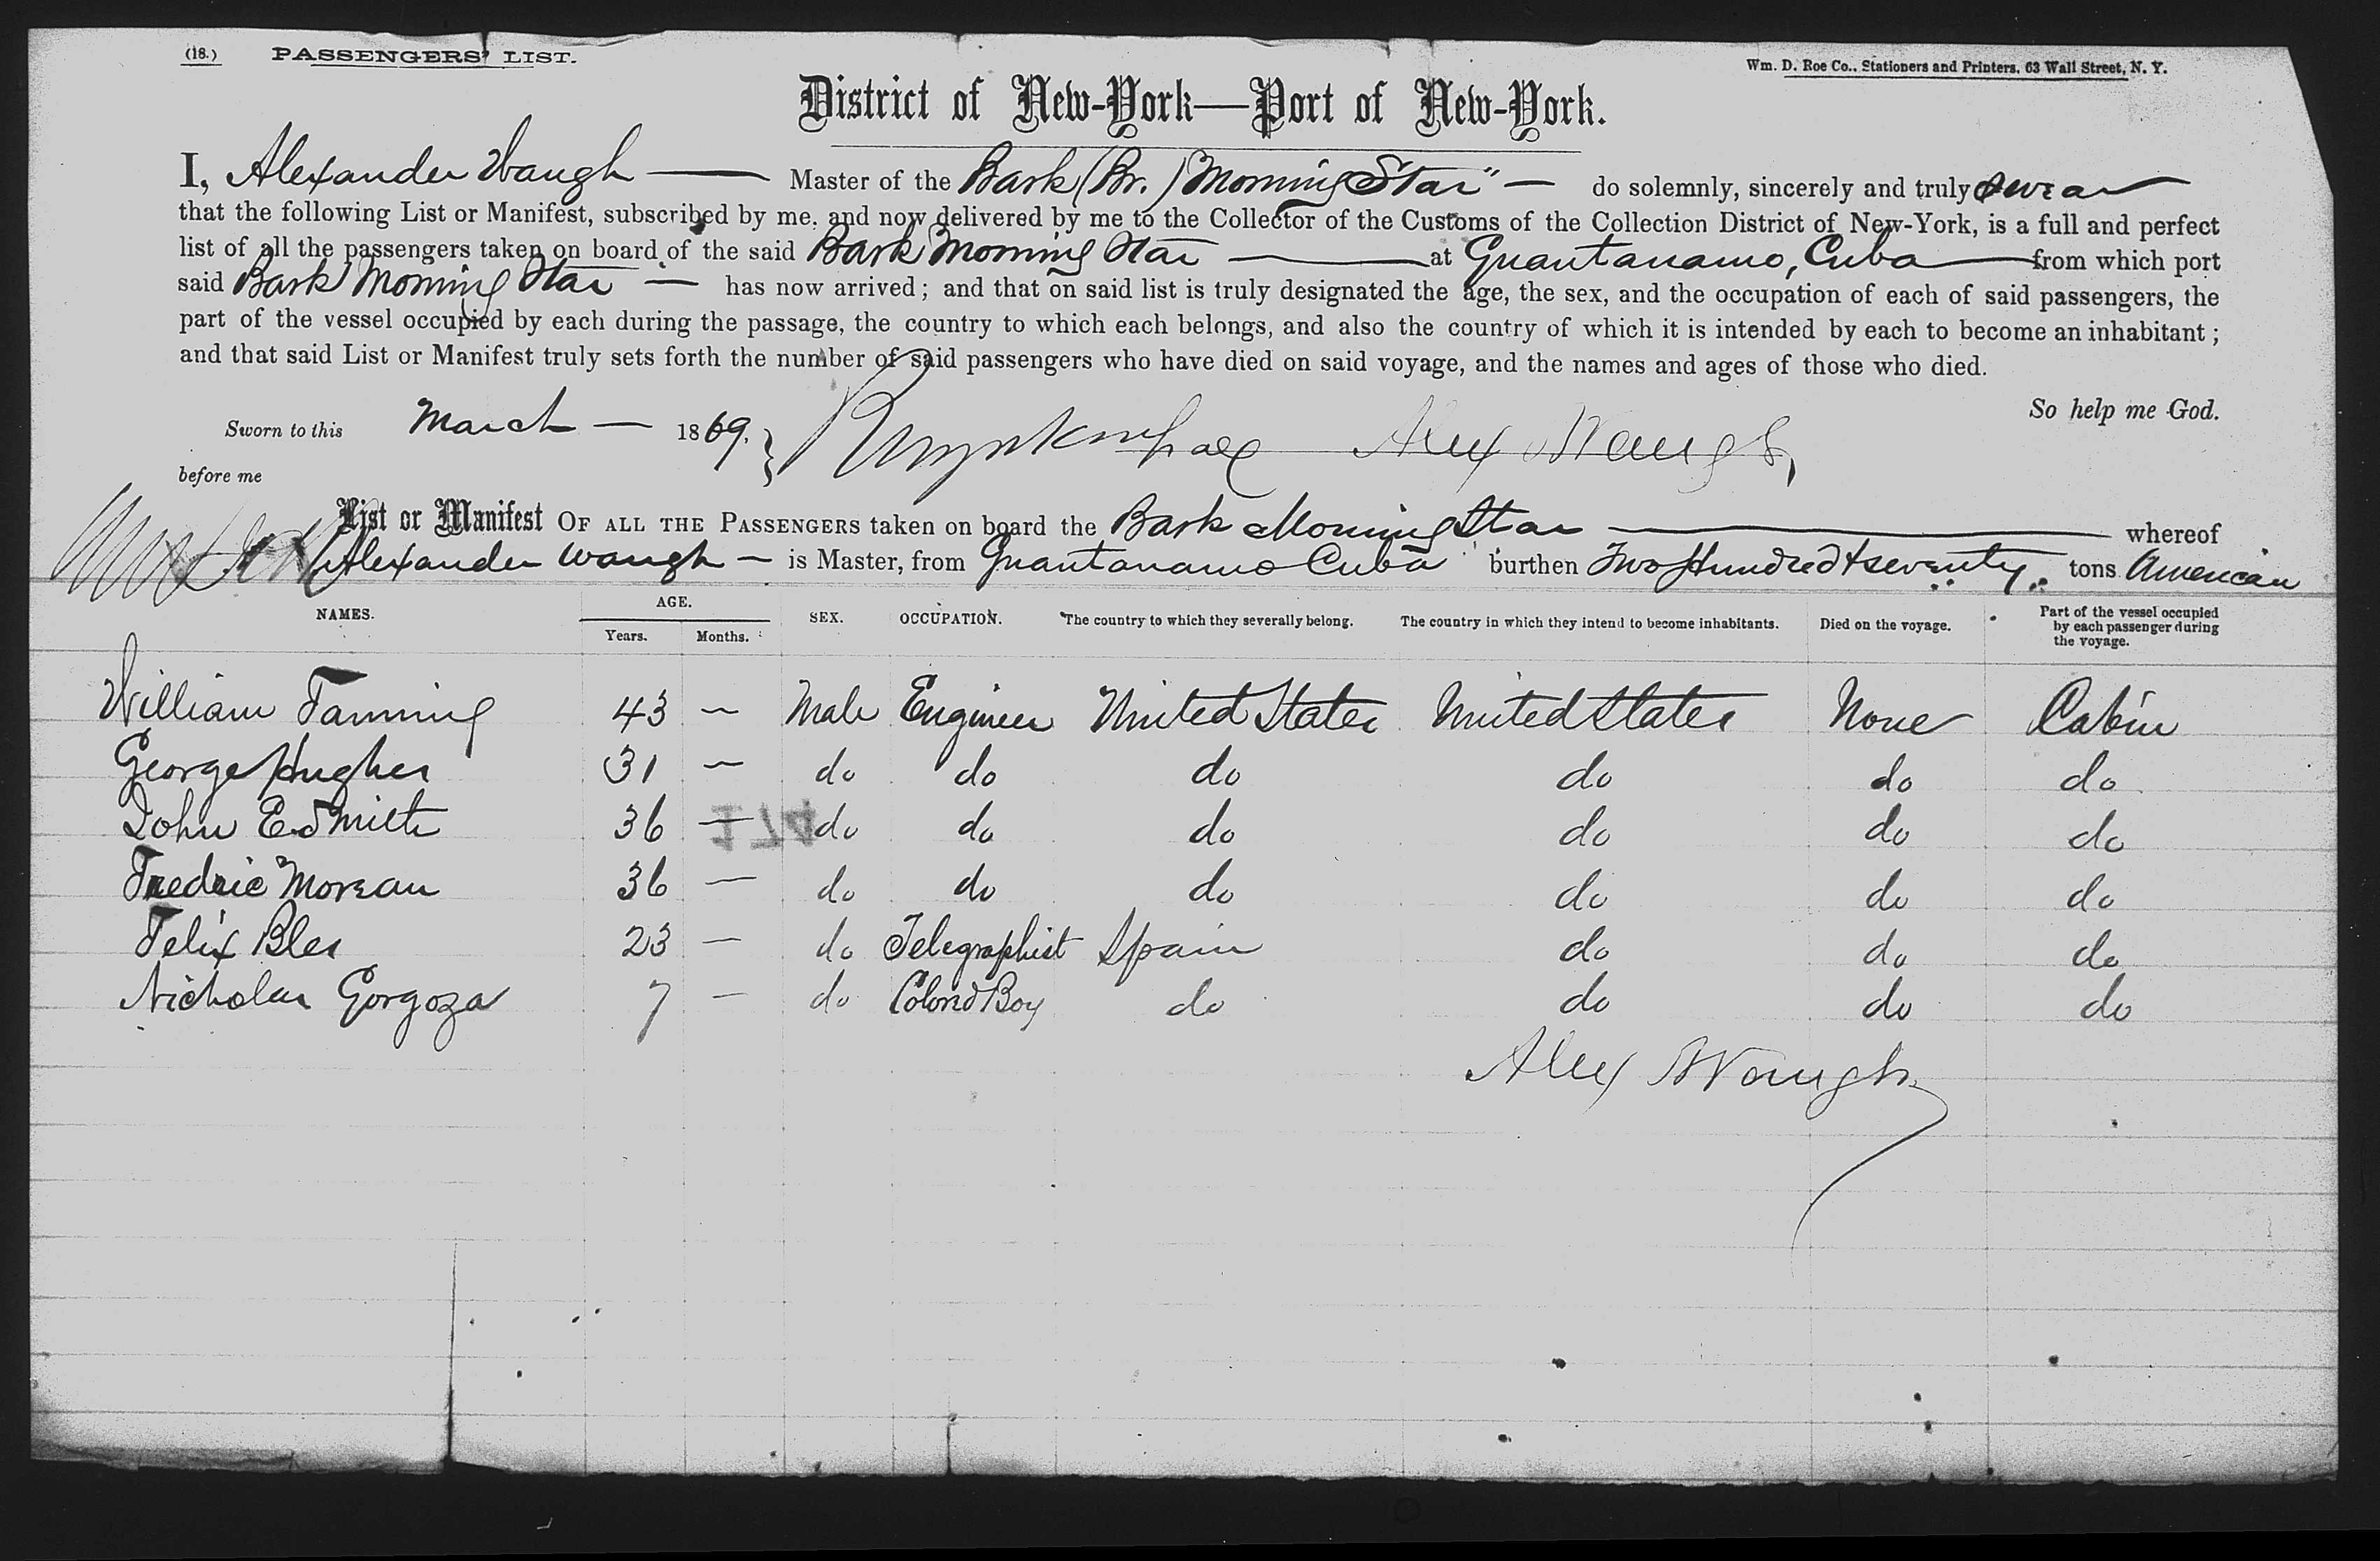 (18.) PASSENGERS' LIST.
Wm. D. Roe Co., Stationers and Printers, 63 Wall Street, N. Y.
District of New-York—Port of New-York.
I, Alexander Waugh — Master of the Bark (Br.) "Morning Star" — do solemnly, sincerely and truly swear
that the following List or Manifest, subscribed by me, and now delivered by me to the Collector of the Customs of the Collection District of New-York, is a full and perfect
list of all the passengers taken on board of the said Bark Morning Star — at Guantanamo, Cuba — from which port
said Bark Morning Star — has now arrived; and that on said list is truly designated the age, the sex, and the occupation of each of said passengers, the
part of the vessel occupied by each during the passage, the country to which each belongs, and also the country of which it is intended by each to become an inhabitant;
and that said List or Manifest truly sets forth the number of said passengers who have died on said voyage, and the names and ages of those who died.
So help me God.
Sworn to this March — 1869. Alex Waugh
before me
List or Manifest OF ALL THE PASSENGERS taken on board the Bark Morning Star — whereof
Alexander Waugh — is Master, from Guantanamo Cuba burthen Two Hundred & seventy tons American
NAMES. AGE. Years. Months. SEX. OCCUPATION. The country to which they severally belong. The country in which they intend to become inhabitants. Died on the voyage. Part of the vessel occupied by each passenger during the voyage.
William Fanning 43 — Male Engineer United States United States None Cabin
George Hughes 31 — do do do do do do
John E Smith 36 — do do do do do do
Fredric Moreau 36 — do do do do do do
Felix Bles 23 — do Telegraphist Spain do do do
Nicholas Gorgoza 7 — do Colord Boy do do do do
Alex Waugh